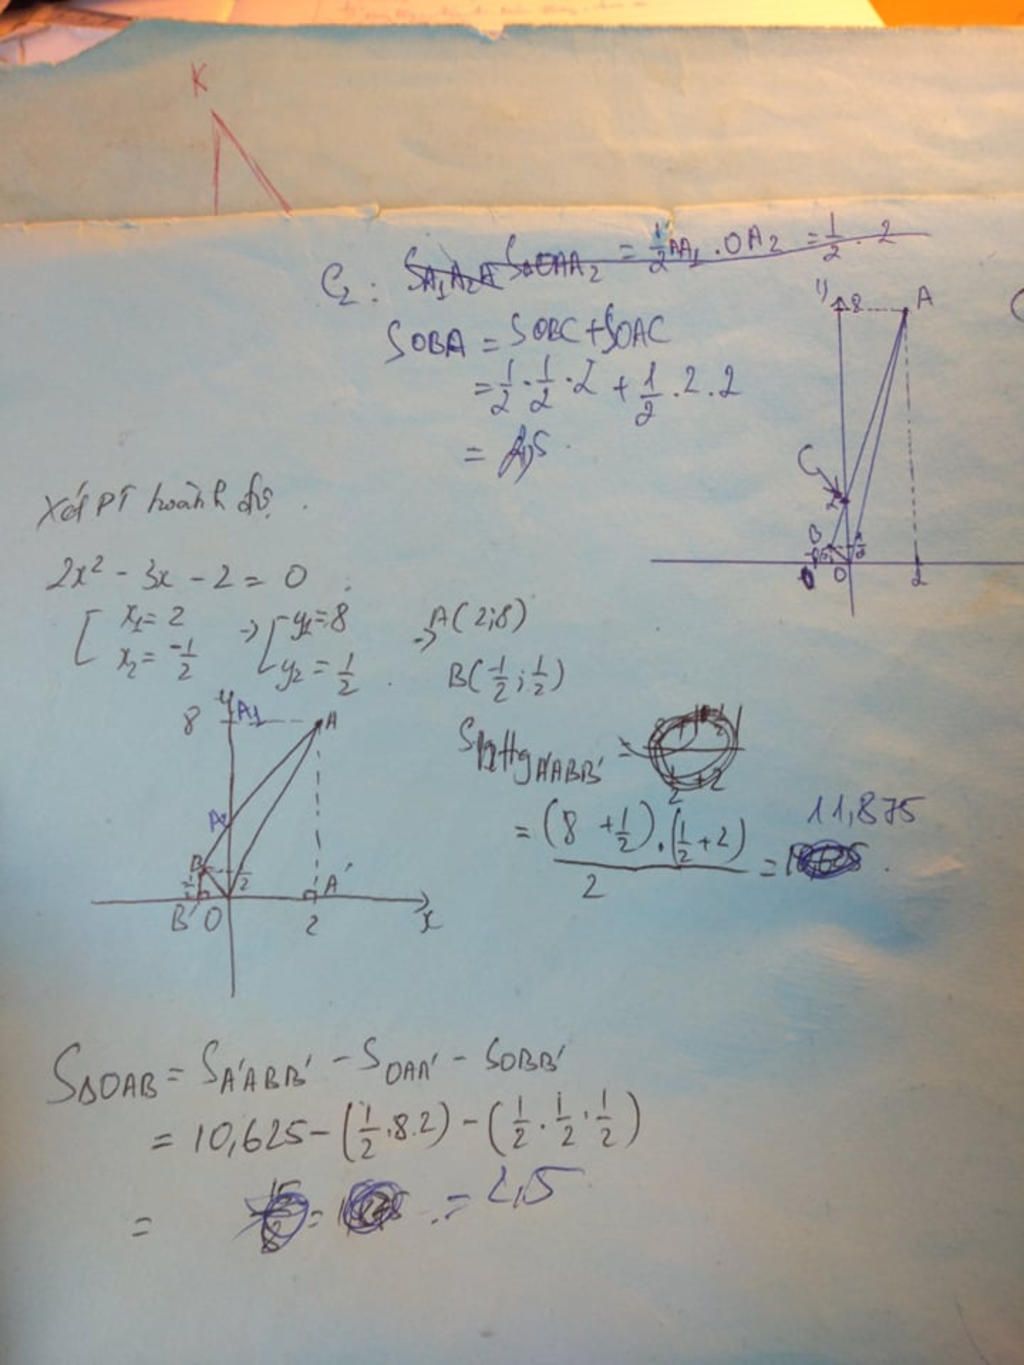 K
C₂: S_A₁A₂A S_ΔOAA₂ = 1/2 AA₁ . OA₂ = 1/2 . 2
S_OBA = S_OBC + S_OAC
= 1/2 . 1/2 . 2 + 1/2 . 2 . 2
= 2,5
y 8 A
C
2
B 1/2
O 2
Xét PT hoành độ.
2x² - 3x - 2 = 0
[ x₁ = 2 → [ y₁ = 8 → A(2;8)
x₂ = -1/2 y₂ = 1/2 . B(-1/2; 1/2)
y
8 A₁ A
A₂
B 1/2
-1/2
B' O 2 A' x
S_A'ABB' =
= (8 + 1/2).(1/2 + 2) / 2 = 11,875
S_ΔOAB = S_A'ABB' - S_OAA' - S_OBB'
= 10,625 - (1/2 . 8.2) - (1/2 . 1/2 . 1/2)
= = = 2,5